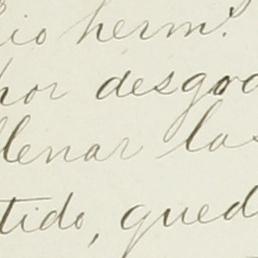 cio herm.
por desgra
llenar las
tido, qued